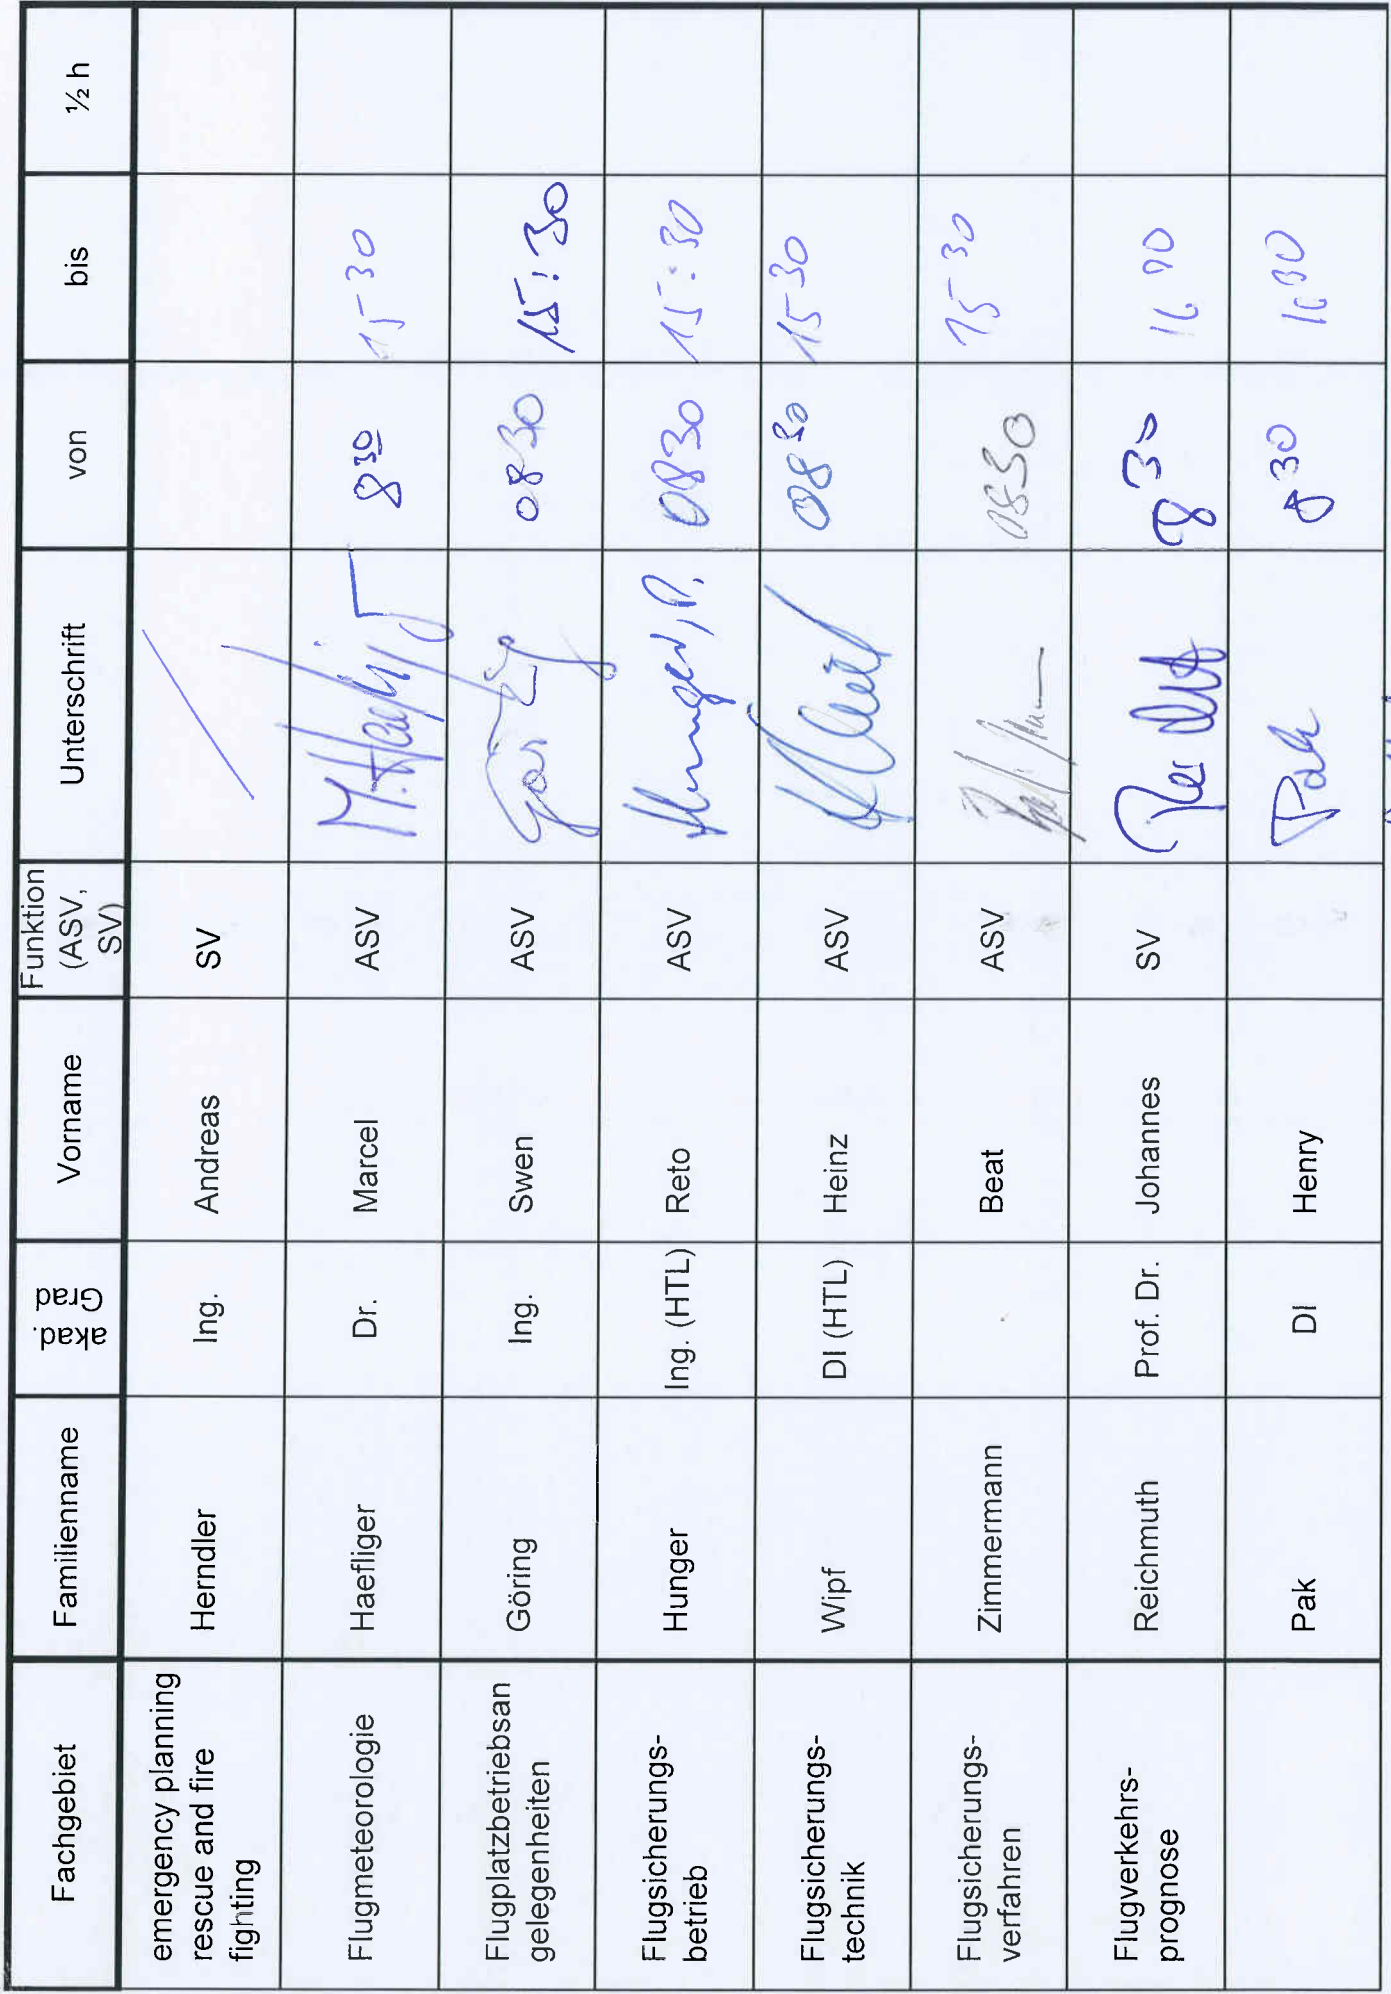 Fachgebiet Familienname akad. Grad Vorname Funktion (ASV, SV) Unterschrift von bis ½ h
emergency planning rescue and fire fighting Herndler Ing. Andreas SV
Flugmeteorologie Haefliger Dr. Marcel ASV M. Haefliger 8 30 15 30
Flugplatzbetriebsan gelegenheiten Göring Ing. Swen ASV 08 30 15:30
Flugsicherungs- betrieb Hunger Ing. (HTL) Reto ASV Hunger, R. 0830 15:30
Flugsicherungs- technik Wipf DI (HTL) Heinz ASV 08 30 15 30
Flugsicherungs- verfahren Zimmermann Beat ASV 0830 15 30
Flugverkehrs- prognose Reichmuth Prof. Dr. Johannes SV 8 30
Pak DI Henry Pak 8 30